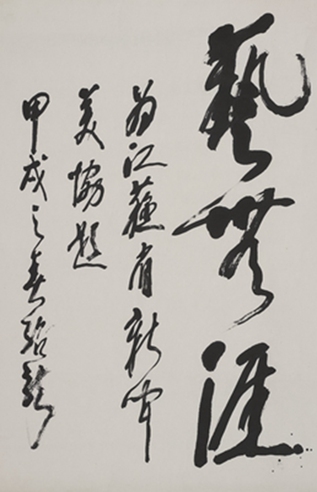 藝無涯
為江蘇省新聞
美協題
甲戌之春